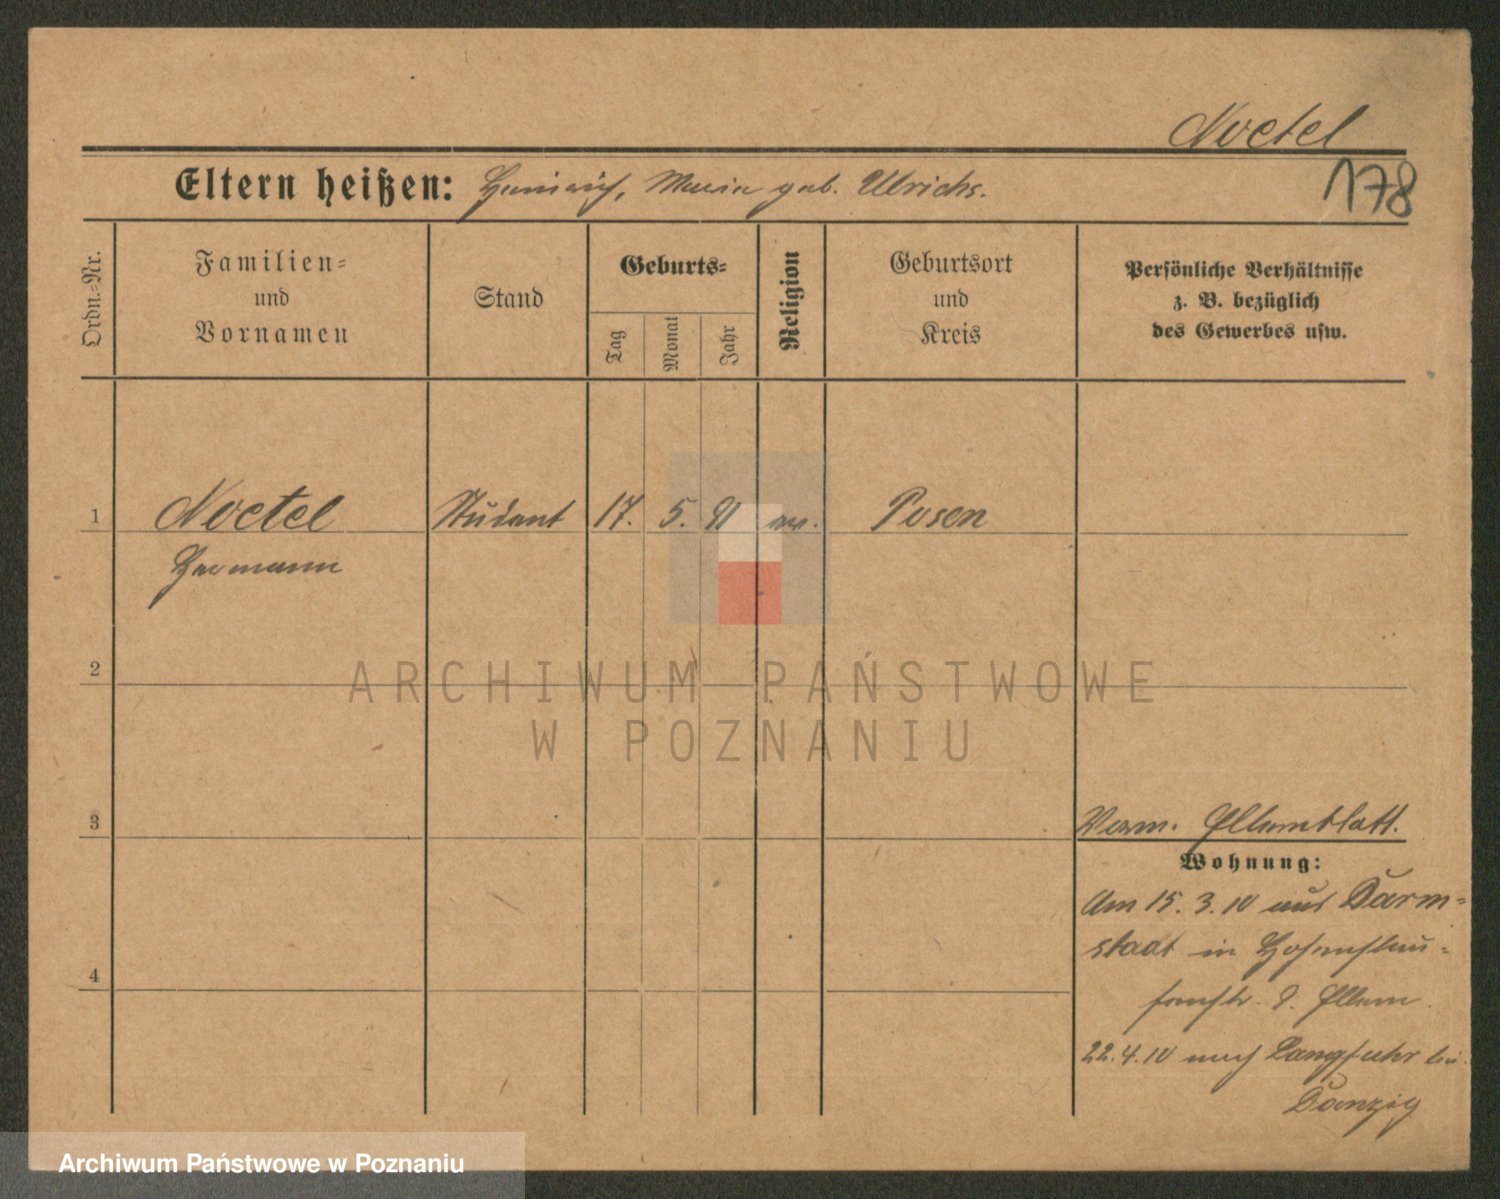 Noetel
Eltern heißen: Heinrich, Maria geb. Ulrichs.
178
Ordn.-Nr.
Familien-
und
Vornamen
Stand
Geburts-
Tag
Monat
Jahr
Religion
Geburtsort
und
Kreis
Persönliche Verhältnisse
z. B. bezüglich
des Gewerbes usw.
1 Noetel Student 17. 5. 91 ev. Posen
Hermann
2
ARCHIWUM PAŃSTWOWE
W POZNANIU
3
Verm. Elternblatt.
Wohnung:
Am 15.3.10 aus Darm-
stadt in
4
Eltern.
22.4.10 nach Langfuhr bei
Danzig
Archiwum Państwowe w Poznaniu